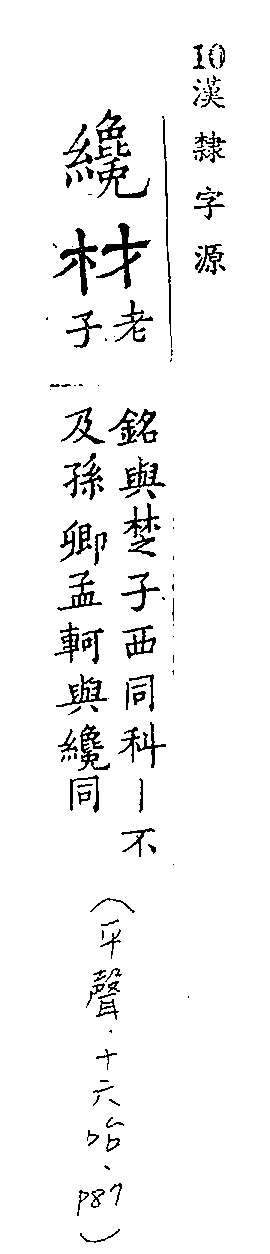 10漢隸字源
纔
材
老子
銘與楚子西同科丨不
及孫卿孟軻與纔同
(平聲.十六咍、P87)